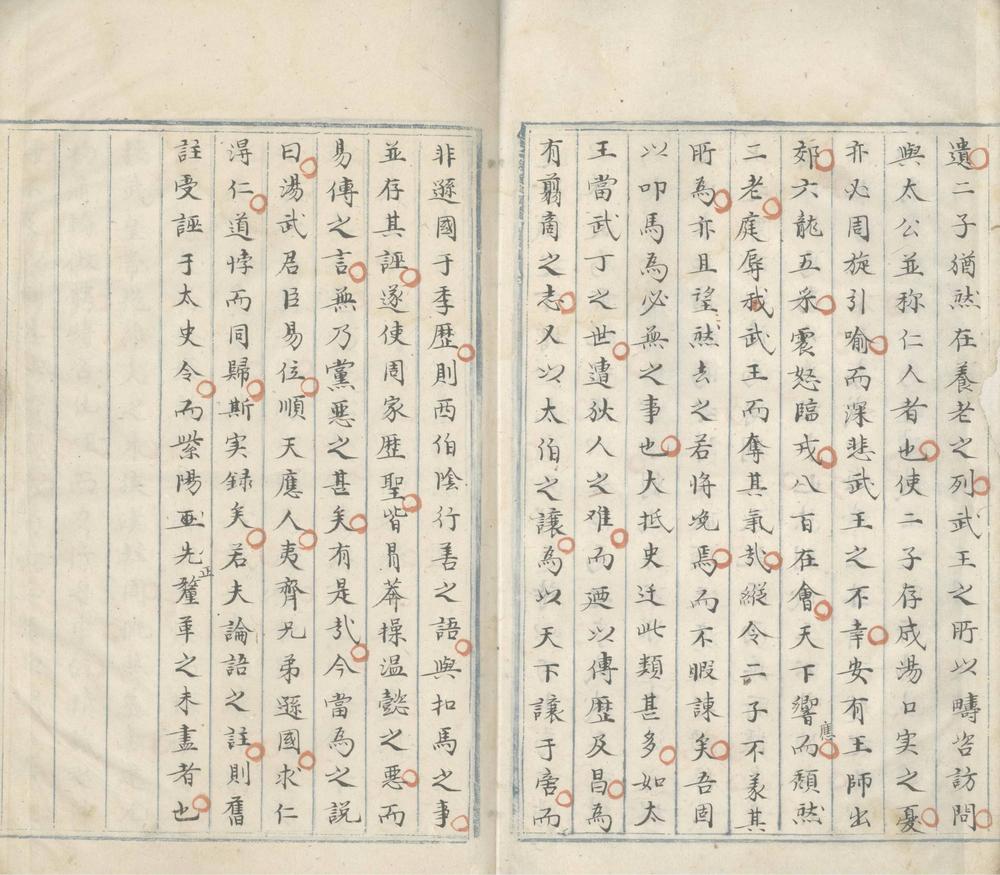 遺二子猶然在養老之列武王之所以疇咨訪問
與太公並称仁人者也使二子存成湯口实之憂
亦必周旋引喻而深悲武王之不幸安有王師出
郊六龍五采震怒臨戎八百在會天下響應而頽然
二老庭辱我武王而奪其氣㢤縱令二子不羕其
所為亦且望然去之若将凂焉而不暇諌矣吾固
以叩馬為必無之事也大抵史迁此類甚多如太
王當武丁之世遭狄人之难而廼以傳歴及昌為
有翦商之志又以太伯之讓為以天下讓于啇而
非遜國于季歴則西伯陰行善之語與扣馬之事
並存其誣遂使周家歴聖皆冐莽操温懿之惡而
易傳之言無乃黨惡之甚矣有是㢤今當為之説
曰湯武君臣易位順天應人夷齊兄弟遜國求仁
淂仁道悖而同歸斯实録矣若夫論語之註則舊
註受誣于太史令而紫陽亟先釐正之未盡者也